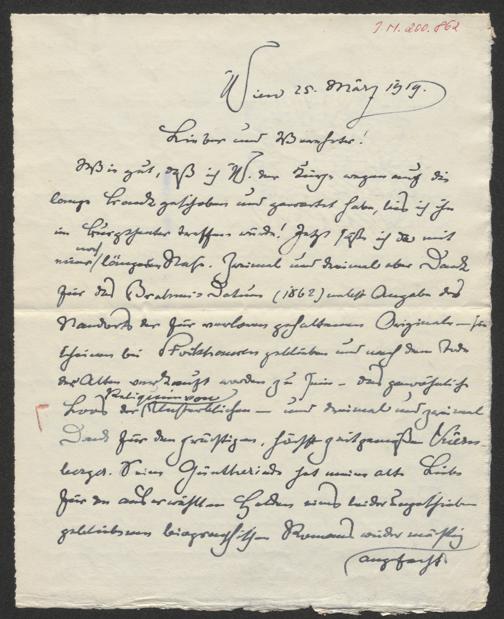 J.N. 200.862
Wien 25. März 1919.
Lieber und Verehrter!
Wie gut, daß ich W. der Kürze wegen auf die
lange Bank geschoben und gewartet habe, bis ich ihn
im Burgtheater treffen würde! Jetzt sitze ich da mit
einer noch längeren Nase. Zweimal und dreimal aber Dank
für das Brahms-Datum (1862) nebst Angabe des
Standorts der für verloren gehaltenen Originale –
scheinen bei geblieben und nach dem Tode
der Alten verkauft worden zu sein – das gewöhnliche
Loos der Reliquien von Unsterblichen – und dreimal und zweimal
Dank für den geistigen, höchst zeitgemäßen
berger. Seine Güntheriade hat meine alte Liebe
für den auserwählten Helden eines leider
gebliebenen biographischen Romans wieder mächtig
angefacht.